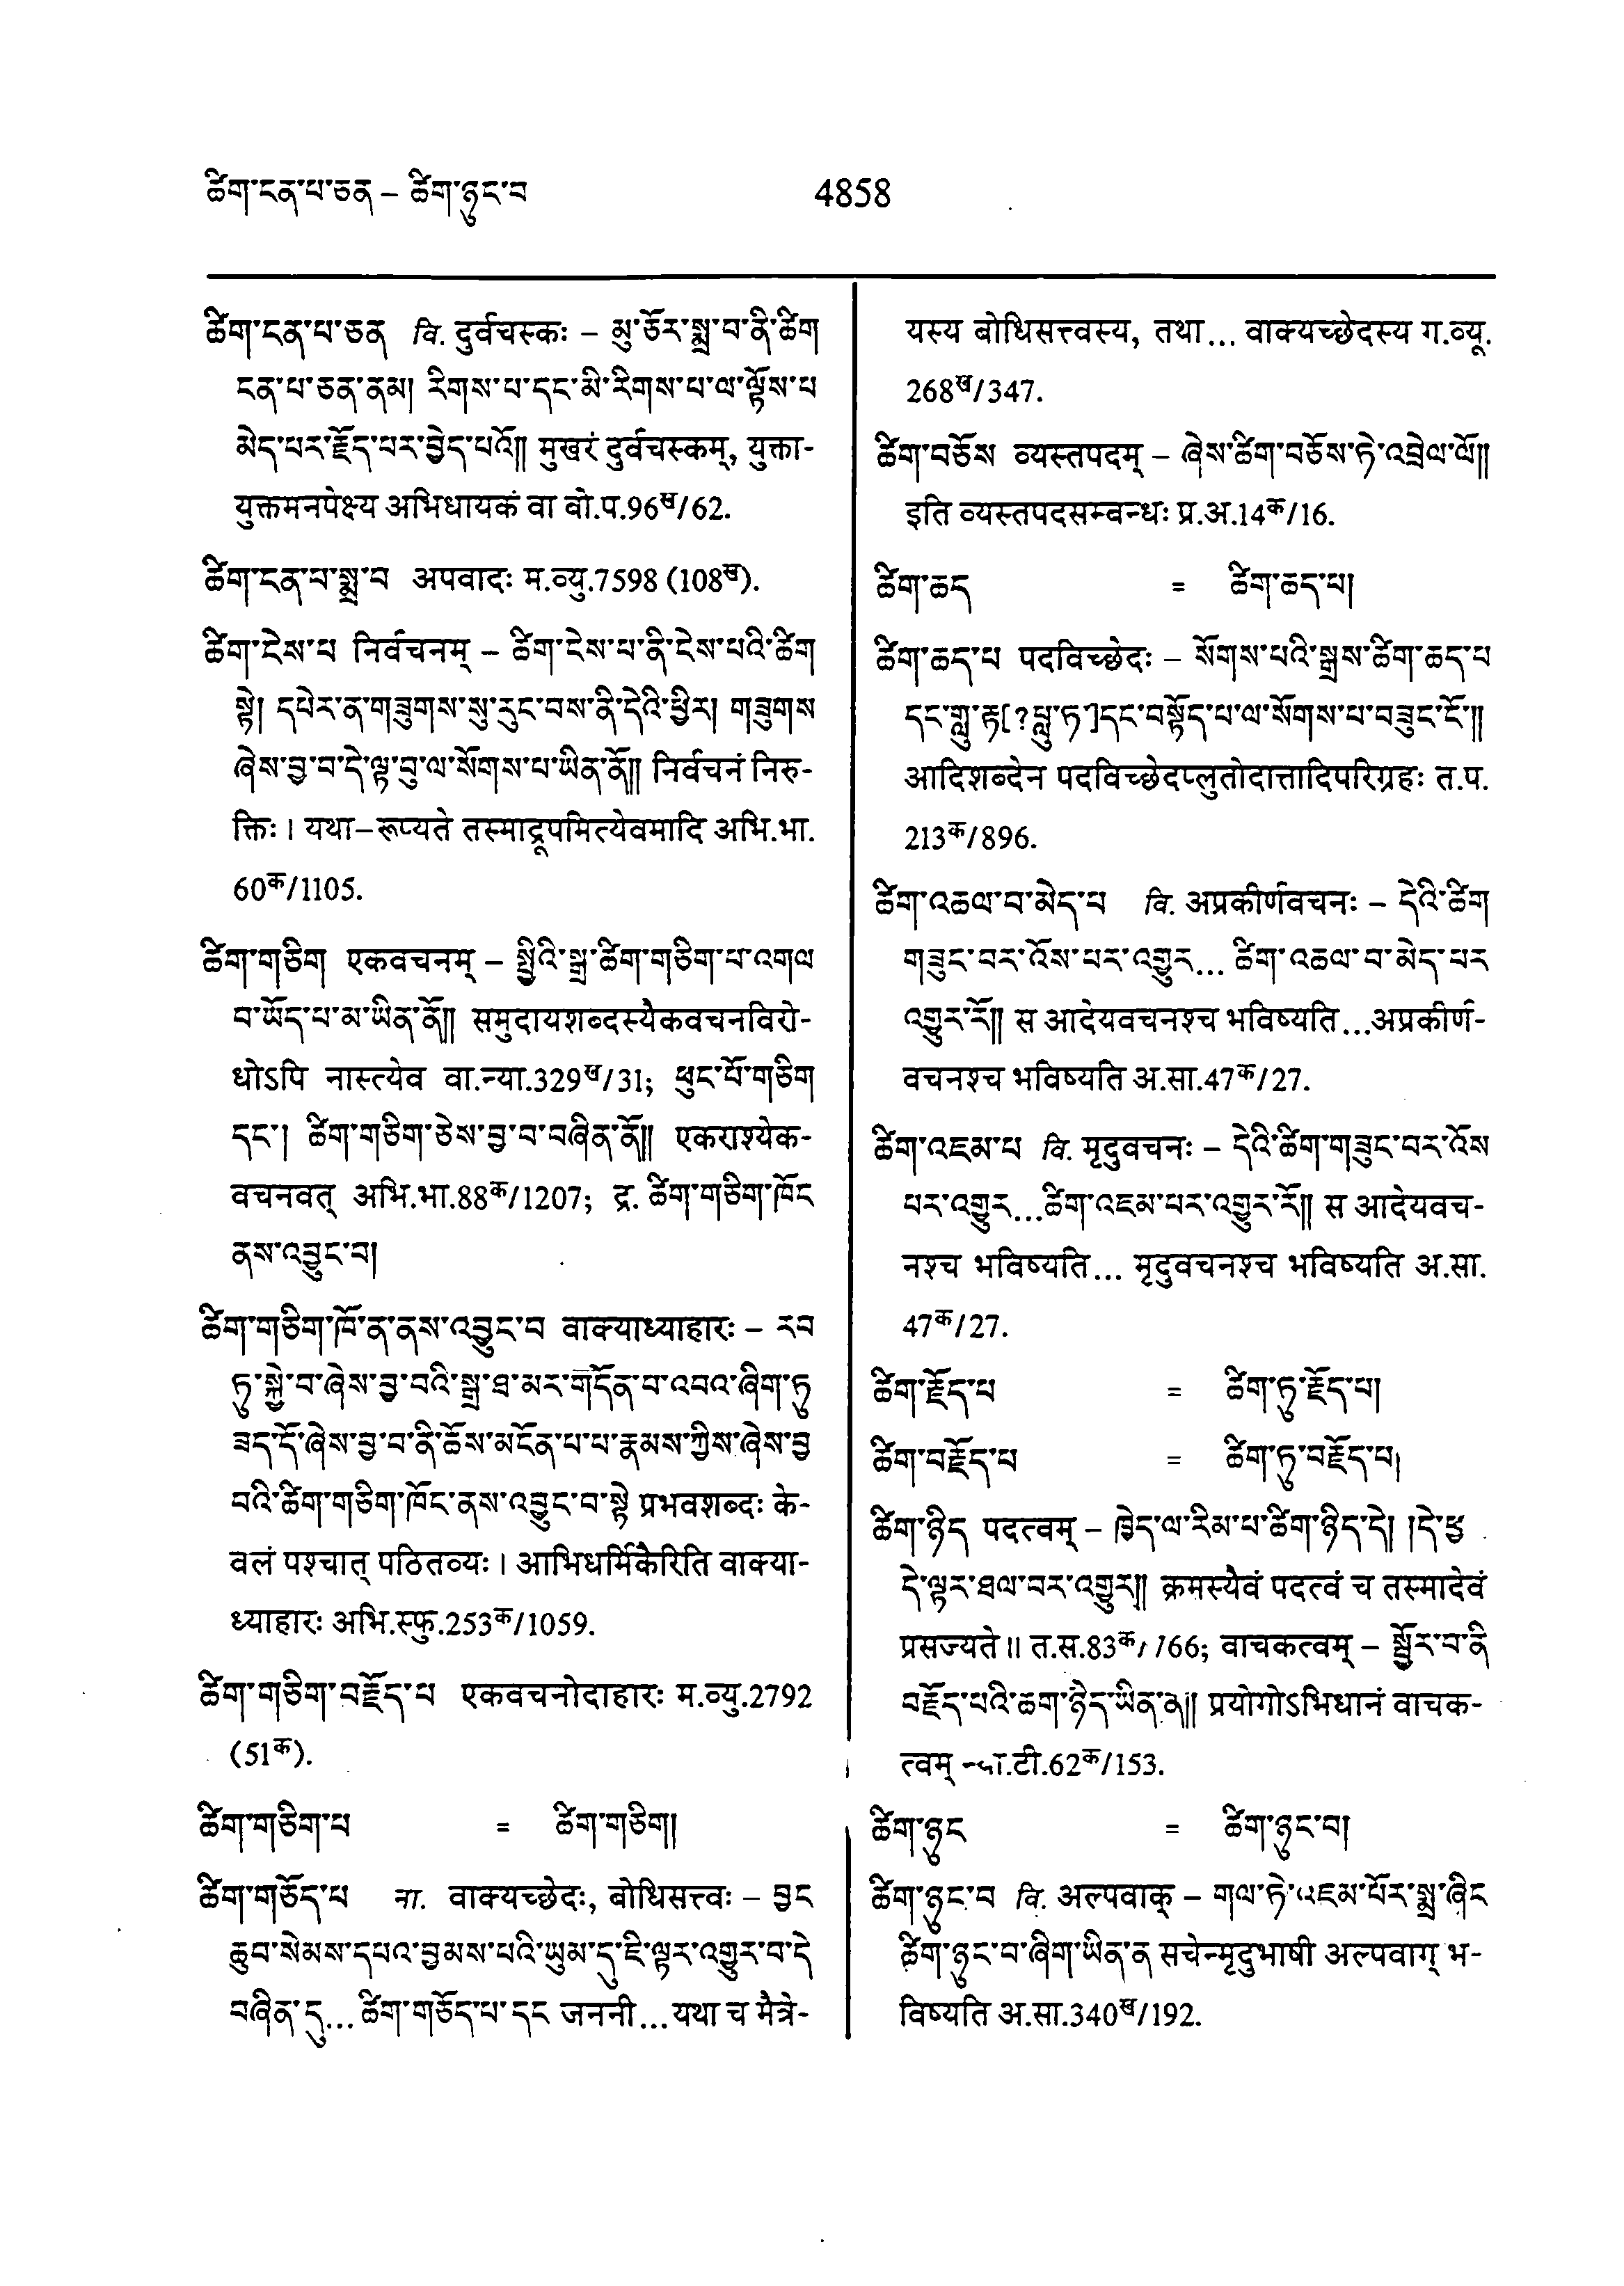 ཚིག་ངན་པ་ཅན – ཚིག་ཉུང་བ
4858
ཚིག་ངན་པ་ཅན वि. दुर्वचस्कः – མུ་ཅོར་སྨྲ་བ་ནི་ཚིག
ངན་པ་ཅན་ནམ། རིགས་པ་དང་མི་རིགས་པ་ལ་ལྟོས་པ
མེད་པར་རྗོད་པར་བྱེད་པའོ།། मुखरं दुर्वचस्कम्, युक्ता-
युक्तमनपेक्ष्य अभिधायकं वा बो.प.96ख/62.
ཚིག་ངན་པ་སྨྲ་བ अपवादः म.व्यु.7598 (108ख).
ཚིག་ངེས་པ निर्वचनम् – ཚིག་ངེས་པ་ནི་ངེས་པའི་ཚིག
སྟེ། དཔེར་ན་གཟུགས་སུ་རུང་བས་ནི་དེའི་ཕྱིར། གཟུགས
ཞེས་བྱ་བ་དེ་ལྟ་བུ་ལ་སོགས་པ་ཡིན་ནོ།། निर्वचनं निरु-
क्तिः। यथा–रूप्यते तस्माद्रूपमित्येवमादि अभि.भा.
60क/1105.
ཚིག་གཅིག एकवचनम् – སྤྱིའི་སྒྲ་ཚིག་གཅིག་པ་འགལ
བ་ཡོད་པ་མ་ཡིན་ནོ།། समुदायशब्दस्यैकवचनविरो-
धोऽपि नास्त्येव वा.न्या.329ख/31; ཕུང་པོ་གཅིག
དང་། ཚིག་གཅིག་ཅེས་བྱ་བ་བཞིན་ནོ།། एकराश्येक-
वचनवत् अभि.भा.88क/1207; द्र. ཚིག་གཅིག་ཁོང
ནས་འབྱུང་བ།
ཚིག་གཅིག་ཁོ་ན་ནས་འབྱུང་བ वाक्याध्याहारः – རབ
ཏུ་སྐྱེ་བ་ཞེས་བྱ་བའི་སྒྲ་ཐ་མར་གདོན་པ་འབའ་ཞིག་ཏུ
ཟད་དོ་ཞེས་བྱ་བ་ནི་ཆོས་མངོན་པ་པ་རྣམས་ཀྱིས་ཞེས་བྱ
བའི་ཚིག་གཅིག་ཁོང་ནས་འབྱུང་བ་སྟེ प्रभवशब्दः के-
वलं पश्चात् पठितव्यः। आभिधर्मिकैरिति वाक्या-
ध्याहारः अभि.स्फु.253क/1059.
ཚིག་གཅིག་བརྗོད་པ एकवचनोदाहारः म.व्यु.2792
(51क).
ཚིག་གཅིག་པ = ཚིག་གཅིག།
ཚིག་གཅོད་པ ना. वाक्यच्छेदः, बोधिसत्त्वः – བྱང
ཆུབ་སེམས་དཔའ་བྱམས་པའི་ཡུམ་དུ་ཇི་ལྟར་འགྱུར་བ་དེ
བཞིན་དུ... ཚིག་གཅོད་པ་དང जननी...यथा च मैत्रे-
यस्य बोधिसत्त्वस्य, तथा... वाक्यच्छेदस्य ग.व्यू.
268ख/347.
ཚིག་བཅོས व्यस्तपदम् – ཞེས་ཚིག་བཅོས་ཏེ་འབྲེལ་ལོ།།
इति व्यस्तपदसम्बन्धः प्र.अ.14क/16.
ཚིག་ཆད = ཚིག་ཆད་པ།
ཚིག་ཆད་པ पदविच्छेदः – སོགས་པའི་སྒྲས་ཚིག་ཆད་པ
དང་གླུ་རྟ[?པླུ་ཏ]དང་བསྟོད་པ་ལ་སོགས་པ་བཟུང་ངོ་།།
आदिशब्देन पदविच्छेदप्लुतोदात्तादिपरिग्रहः त.प.
213क/896.
ཚིག་འཆལ་བ་མེད་པ वि. अप्रकीर्णवचनः – དེའི་ཚིག
གཟུང་བར་འོས་པར་འགྱུར... ཚིག་འཆལ་བ་མེད་པར
འགྱུར་རོ།། स आदेयवचनश्च भविष्यति...अप्रकीर्ण-
वचनश्च भविष्यति अ.सा.47क/27.
ཚིག་འཇམ་པ वि. मृदुवचनः – དེའི་ཚིག་གཟུང་བར་འོས
པར་འགྱུར...ཚིག་འཇམ་པར་འགྱུར་རོ།། स आदेयवच-
नश्च भविष्यति... मृदुवचनश्च भविष्यति अ.सा.
47क/27.
ཚིག་རྗོད་པ = ཚིག་ཏུ་རྗོད་པ།
ཚིག་བརྗོད་པ = ཚིག་ཏུ་བརྗོད་པ།
ཚིག་ཉིད पदत्वम् – ཁྱེད་ལ་རིམ་པ་ཚིག་ཉིད་དེ། །དེ་ཕྱ
དེ་ལྟར་ཐལ་བར་འགྱུར།། क्रमस्यैवं पदत्वं च तस्मादेवं
प्रसज्यते॥ त.स.83क/766; वाचकत्वम् – སྦྱོར་བ་ནི
བརྗོད་པའི་ཆག་ཉིད་ཡིན་ན།། प्रयोगोऽभिधानं वाचक-
त्वम् टी.62क/153.
ཚིག་ཉུང = ཚིག་ཉུང་བ།
ཚིག་ཉུང་བ वि. अल्पवाक् – གལ་ཏེ་འཇམ་པོར་སྨྲ་ཞིང
ཚིག་ཉུང་བ་ཞིག་ཡིན་ན सचेन्मृदुभाषी अल्पवाग् भ-
विष्यति अ.सा.340ख/192.